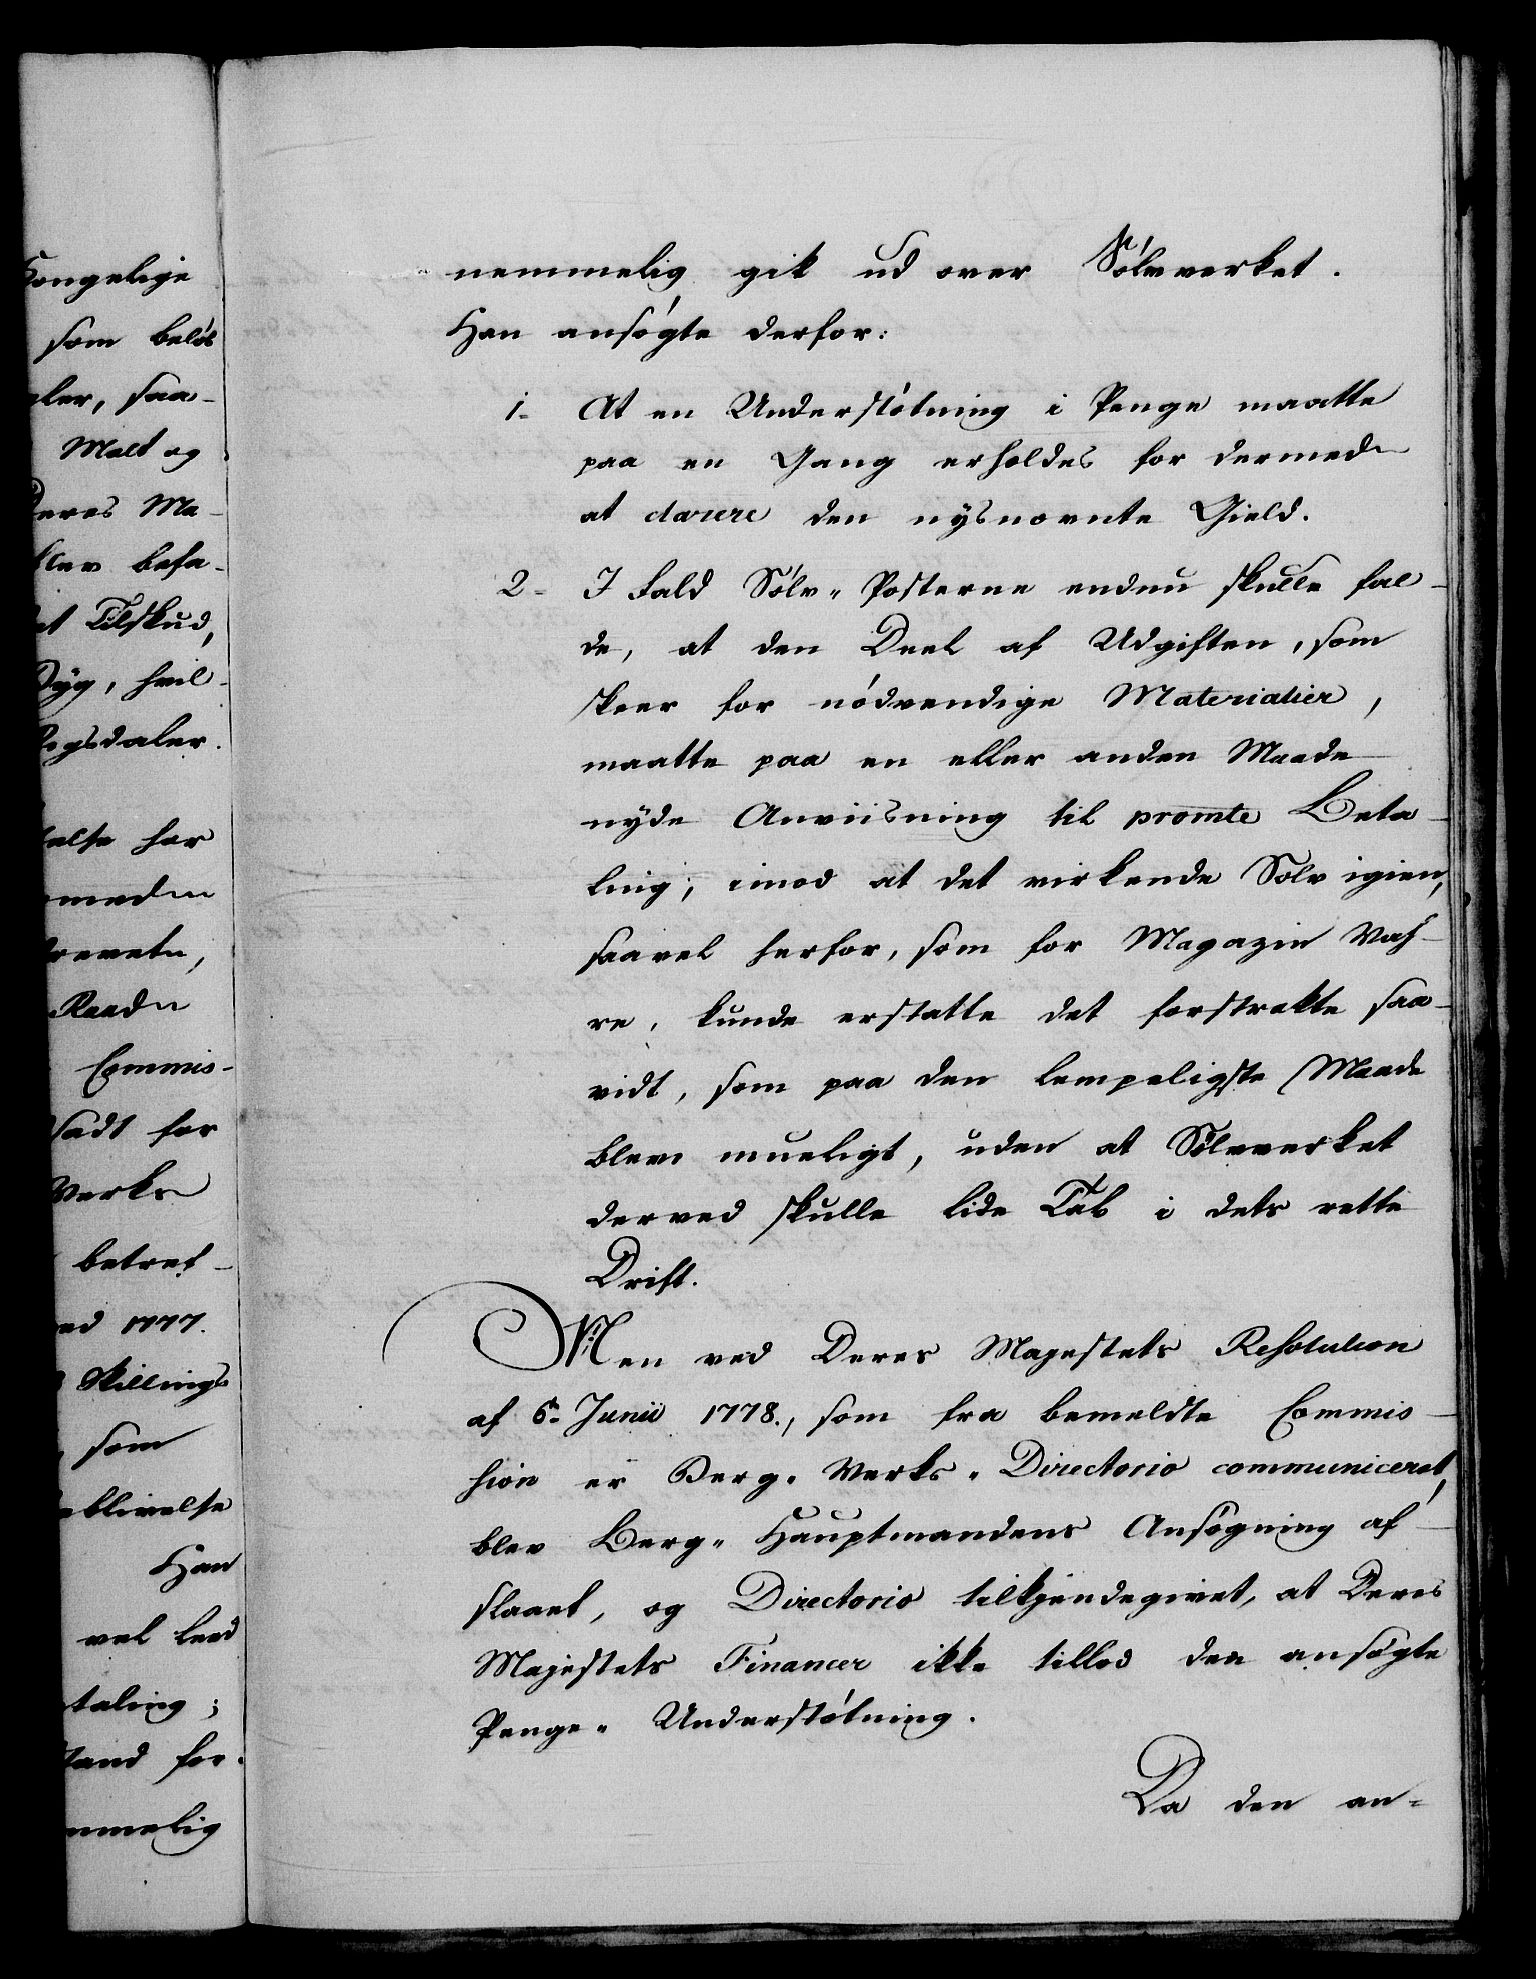 Kongelige
som beløb
gler, saa-
Malt og
Deres Ma-
blev befa-
et Tilskud,
Dyg, hvil-
Rigsdaler.
telse har
med
drevet,
Raad
Commis-
sadt for
Verks
betref-
ved 1777.
Skillings
som
eblivelse
Han
vel lend
taling;
stand for-
nemmelig
nemmelig gik ud over Sølvverket.
Han ansøgte derfor:
1- At en Understøtning i Penge maatte
paa en Gang erholdes for dermed
at clarere den nysnævnte Gield.
2- I Fald Sølv-Posterne endnu skulle fal-
de, at den Deel af Udgiften, som
skeer for nødvendige Materialier,
maatte paa en eller anden Maade
nyde Anviisning til promte Beta-
ling; imod at det virkende Sølv igien,
saavel herfor, som for Magazin Vah-
re, kunde erstatte det forstrakte saa-
vidt, som paa den lempeligste Maade
blev mueligt, uden at Sølvverket
derved skulle lide Tab i dets rette
Drift.
Men ved Deres Majestets Resolution
af 6te Junii 1778., som fra bemeldte Commis-
sion er Berg-Verks-Directorio communiceret,
blev Berg-Hauptmandens Ansøgning af-
slaaet, og Directorio tilkjendegivet, at Deres
Majestets Financer ikke tillod den ansøgte
Penge-Understøtning.
Da den an-